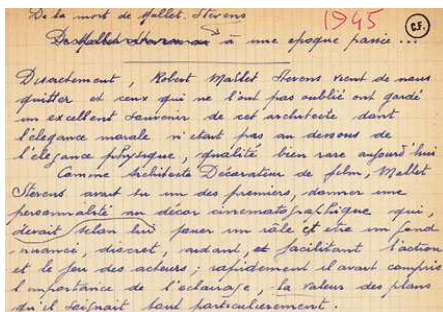 De la mort de Mallet. Stevens
1945
C.F.
à une epoque passée...
Disactement, Robert Mallet Stevens vient de nous
quitter et ceux qui ne l'ont pas oublié ont gardé
un excellent souvenir de cet architecte dont
l'élégance morale n'etait pas au dessous de
l'élégance physique, qualité bien rare aujourd'hui
Comme Architecte Décorateur de film, Mallet
Stevens avait su un des premiers, donner une
personnalité au décor cinématographique qui,
devait selon lui jouer un rôle et etre un fond
nuancé, discret, aidant, et facilitant l'action
et le jeu des acteurs; rapidement il avait compris
l'importance de l'eclairage, la valeur des plans
qu'il soignait tout particulierement.